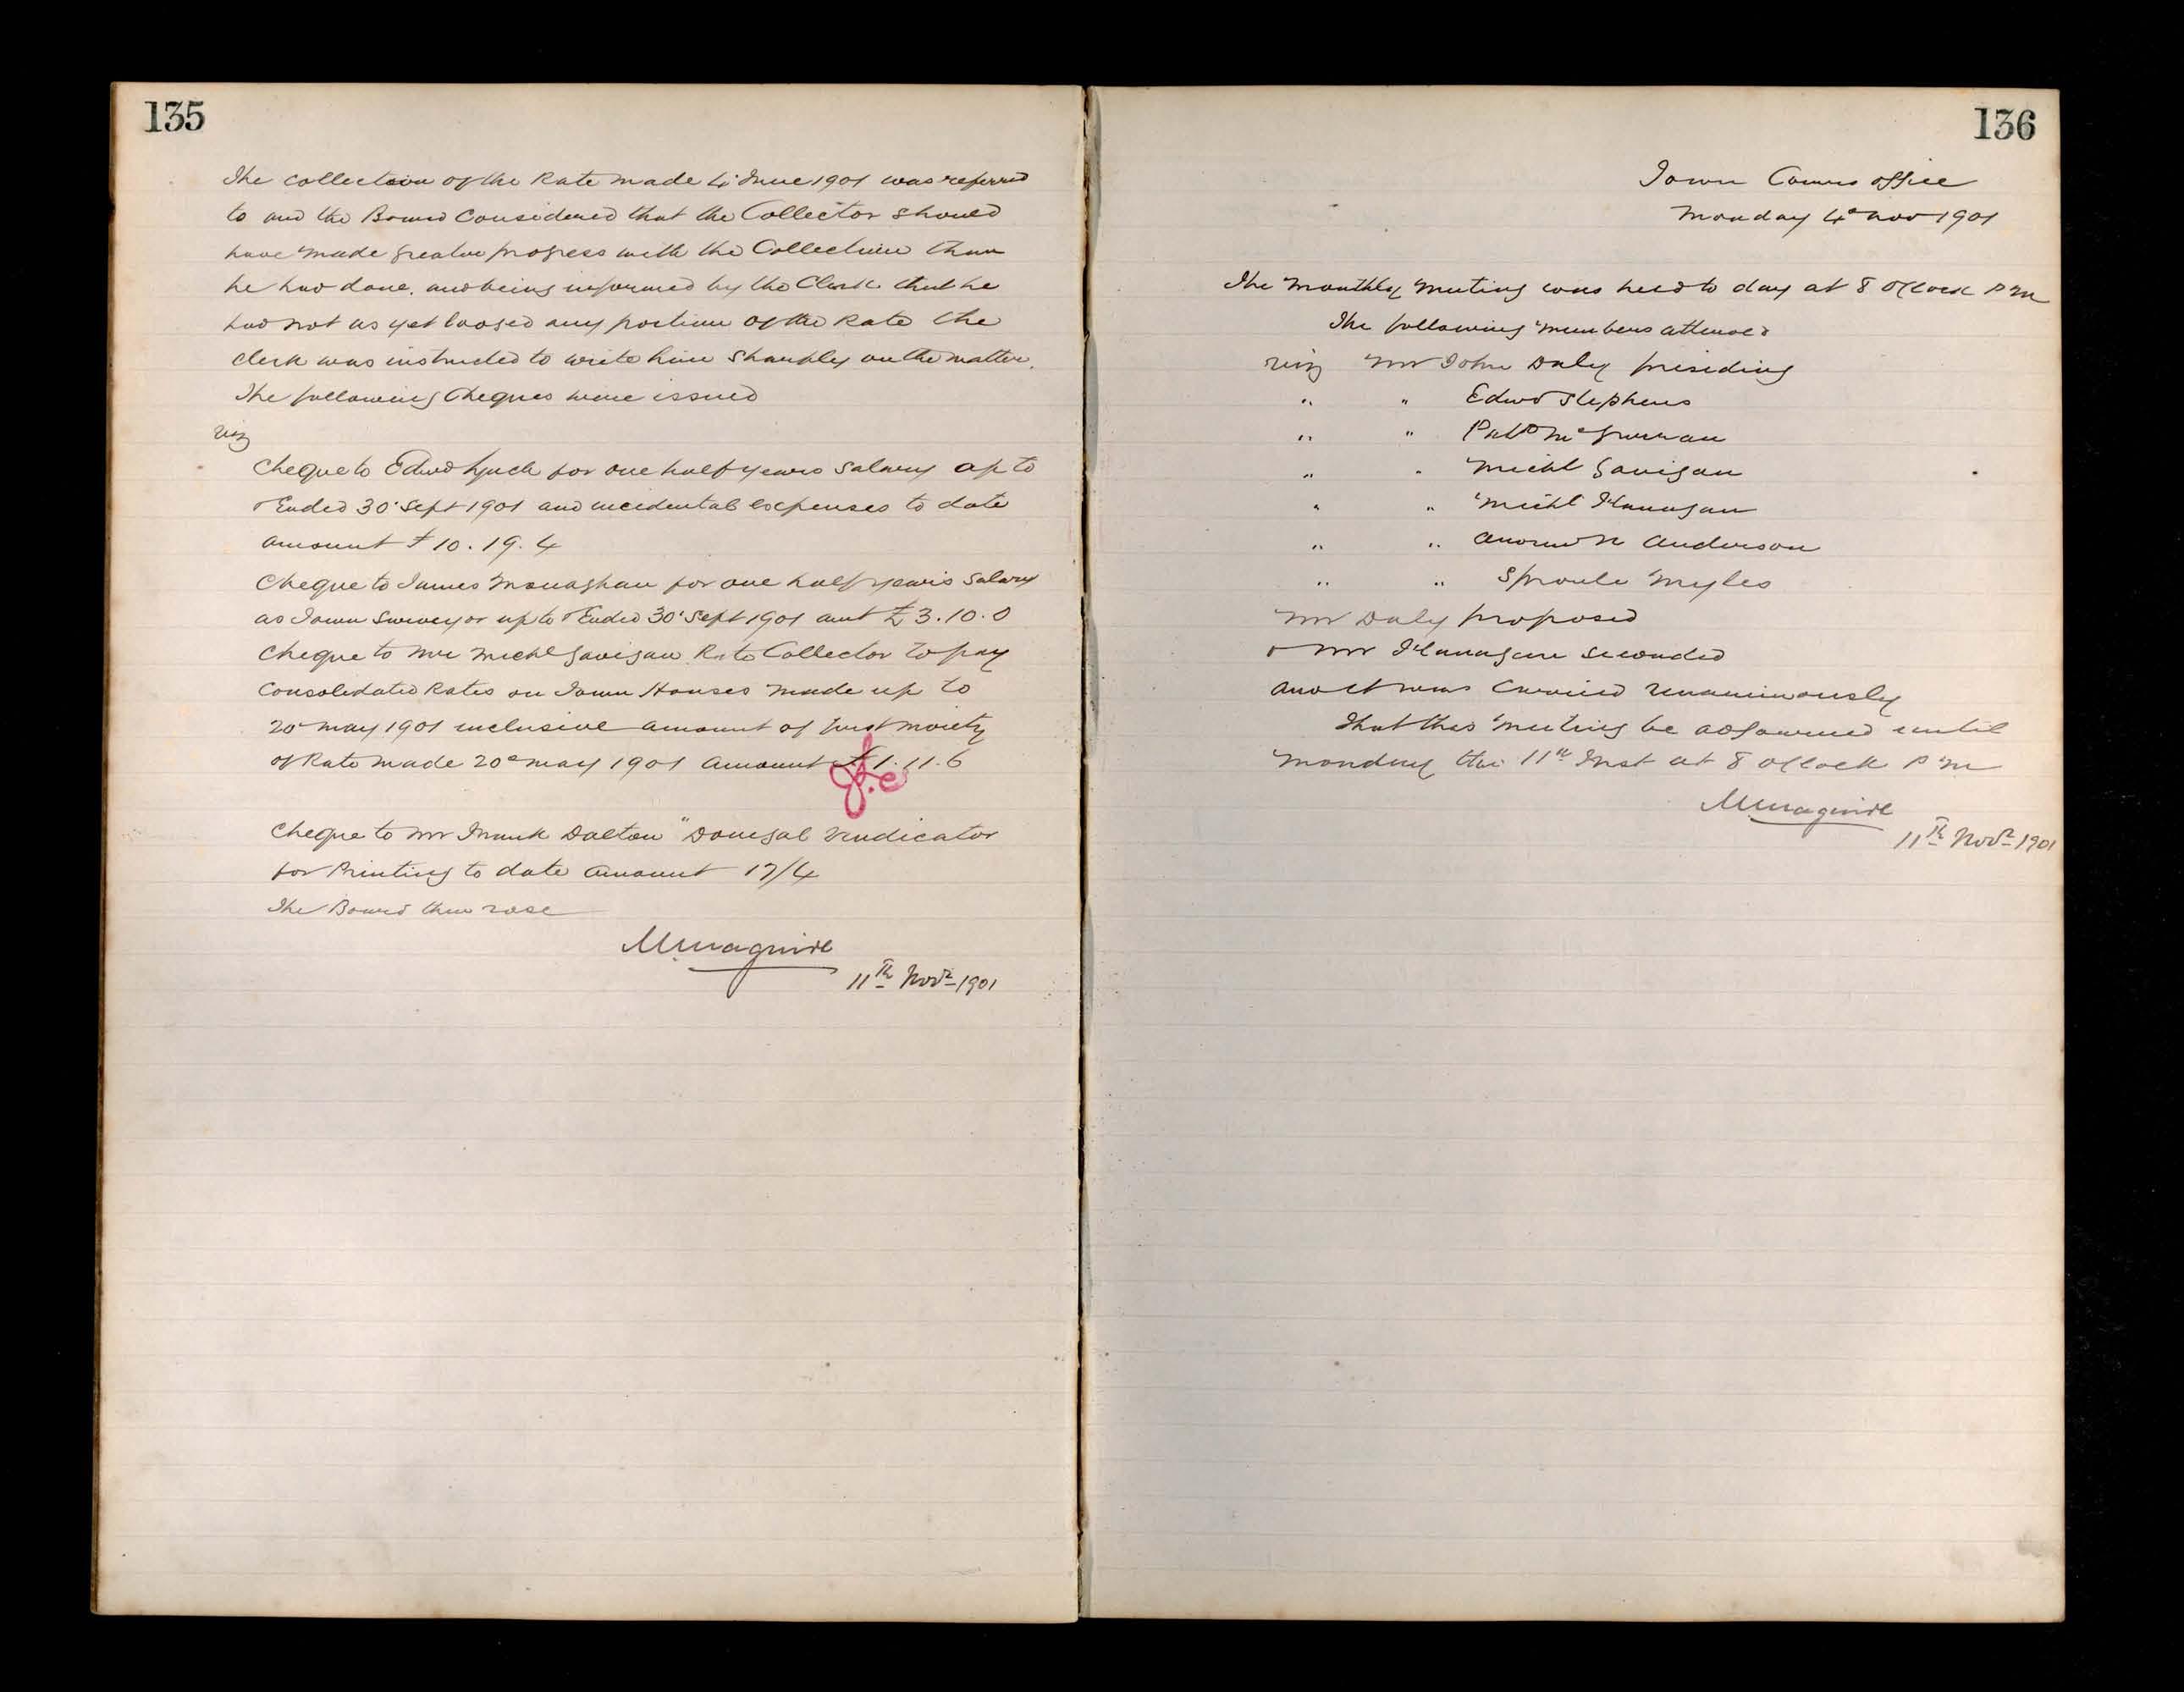 135
The collection of the Rate made 4° June 1901 was referred
to and the Board Considered that the Collector should
have made greater progress with the Collection than
he had done. and being informed by the Clerk that he
had not as yet lodged any portion of the Rate the
Clerk was instructed to write him sharply on the matter.
The following Cheques were issued
viz
Cheque to Edwd Lynch for one half years Salary up to
& Ended 30° Sept 1901 and incidental expenses to date
amount £10.19.4
Cheque to James Monaghan for one half years Salary
as Town Surveyor up to & Ended 30° Sept 1901 amt £3.10.0
Cheque to Mr Michl Gavigan Rate Collector to pay
Consolidated Rates on Town Houses made up to
20° May 1901 inclusive amount of first moiety
of Rate made 20° May 1901 Amount £1.11.6
Cheque to Mr Frank Dalton "Donegal Vindicator
for Printing to date Amount 17/4
The Board then rose
M Maguire
11th Novr 1901
136
Town Comrs office
Monday 4° Nov 1901
The Monthly Meeting was held to day at 8 O'Clock P M
The following Members attended
viz Mr John Daly presiding
" " Edwd Stephens
" " Patk
" " Michl Gavigan
" " Michl Flanagan
" " Andrew Anderson
" " Sproule Myles
Mr Daly proposed
& Mr Flanagan Seconded
and it was Carried unanimously
That this Meeting be adjourned until
Monday the 11th Inst at 8 O'Clock P M
M Maguire
11th Novr 1901